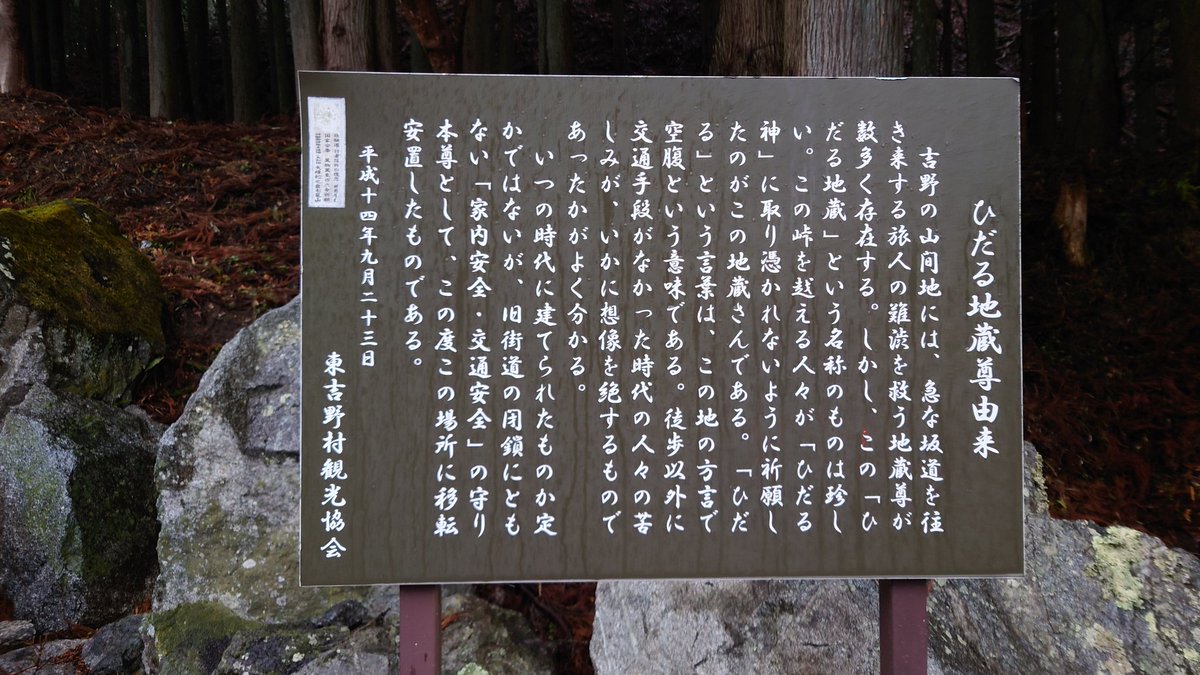 ひだる地蔵尊由来
吉野の山間地には、急な坂道を往
き来する旅人の難渋を救う地蔵尊が
数多く存在する。しかし、この「ひ
だる地蔵」という名称のものは珍し
い。この峠を越える人々が「ひだる
神」に取り憑かれないように祈願し
たのがこの地蔵さんである。「ひだ
る」という言葉は、この地の方言で
空腹という意味である。徒歩以外に
交通手段がなかった時代の人々の苦
しみが、いかに想像を絶するもので
あったかがよく分かる。
いつの時代に建てられたものか定
かではないが、旧街道の閉鎖にとも
ない「家内安全・交通安全」の守り
本尊として、この度この場所に移転
安置したものである。
平成十四年九月二十三日
東吉野村観光協会